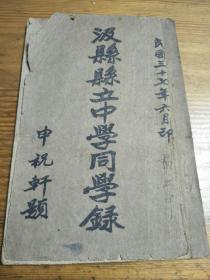 民國三十七年六月印
汲縣縣立中學同學錄
申祝軒題